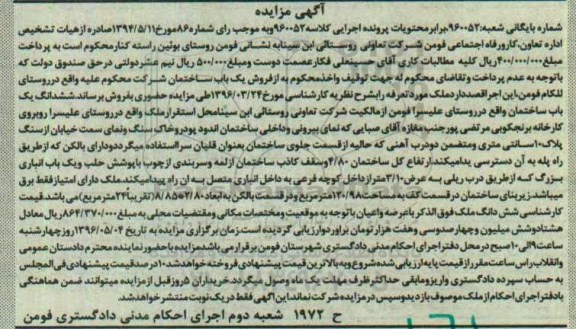 آگهی مزایده
شماره بایگانی شعبه: ۹۶۰۰۵۳، برابر محتویات پرونده اجرایی کلاسه ۹۶۰۰۵۲ و به موجب رای شماره ۸۶ مورخ ۱۳۹۴/۵/۱۱ صادره از هیات تشخیص
اداره تعاون، کار و رفاه اجتماعی فومن شرکت تعاونی روستائی ابن سینا به نشانی فومن روستای بوئین راسته کنار محکوم است به پرداخت
مبلغ ۴۰۰/۰۰۰/۰۰۰ ریال کلیه مطالبات کاری آقای حسینعلی فکار عصمت دوست و مبلغ ۵۰۰/۰۰۰ ریال نیم عشر دولتی در حق صندوق دولت که
با توجه به عدم پرداخت و تقاضای محکوم له جهت توقیف و اخذ محکوم به از فروش یک باب ساختمان شرکت محکوم علیه واقع در روستای
للکام فومن، این اجرا قصد دارد ملک مورد تعرفه را بشرح نظریه کارشناسی مورخ ۱۳۹۶/۰۳/۲۴ طی مزایده حضوری بفروش برساند ششدانگ یک
باب ساختمان واقع در روستای علیسرا فومن از مالکیت شرکت تعاونی روستائی ابن سینا محل استقرار ملک واقع در روستای علیسرا روبروی
کارخانه برنجکوبی مرتضی پور جنب مغازه آقای صبایی که نمای بیرونی و داخلی ساختمان اندود پودر و خاک سنگ و نمای سمت خیابان از سنگ
پلاک ۱۰ سانتی متری ومتضمن دو درب آهنی که حالیه از قسمت جلوی ساختمان بعنوان قلیان سرا استفاده میگردد و دارای بالکن که از طریق
راه پله به آن دسترسی پیدا میکند ارتفاع کل ساختمان ۴/۸۰ وسقف کاذب ساختمان از لمه و سربندی از چوب با پوشش حلب و یک باب انباری
بزرگ که از طریق درب ریلی به عرض ۳/۱۰ متر از داخل کوچه فرعی به داخل انباری متصل به آن راه پیدا میکند. ملک دارای امتیاز فقط برق
میباشد. زیربنای ساختمان در قسمت کف به مساحت ۱۳۰/۹۸ متر مربع و در قسمت بالکن به ابعاد ۲/۸۰\*۸/۸۵ (تقریبا ۲۴ مترمربع) می باشد قیمت
کارشناسی شش دانگ ملک فوق الذکر با عرصه و اعیان با توجه به موقعیت و مختصات مکانی و مقتضیات محلی به مبلغ ۸۶۴/۳۷۰/۰۰۰ ریال معادل
هشتاد و شش میلیون و چهارصد و سی و هفت هزار تومان برآورد و ارزیابی گردیده است. زمان برگزاری مزایده به تاریخ ۱۳۹۶/۰۵/۰۴ روز چهارشنبه
ساعت ۹ الی ۱۰ صبح در محل دفتر اجرای احکام مدنی دادگستری شهرستان فومن برقرار می باشد مزایده با حضور نماینده محترم دادستان عمومی
وانقلاب راس ساعت مقرر از قیمت پایه ارزیابی شده شروع و به بالاترین قیمت پیشنهادی فروخته خواهد شد ۱۰ درصد قیمت پیشنهادی فی المجلس
به حساب سپرده دادگستری واریز و مابقی حداکثر ظرف مهلت یک ماه وصول میگردد. خریداران ۵ روز قبل از مزایده میتوانند ضمن هماهنگی
با دفتر اجرای احکام از ملک موصوف بازدید و سپس در مزایده شرکت نمایند این آگهی فقط در یک نوبت منتشر خواهد شد.
ح ۱۹۷۲ شعبه دوم اجرای احکام مدنی دادگستری فومن